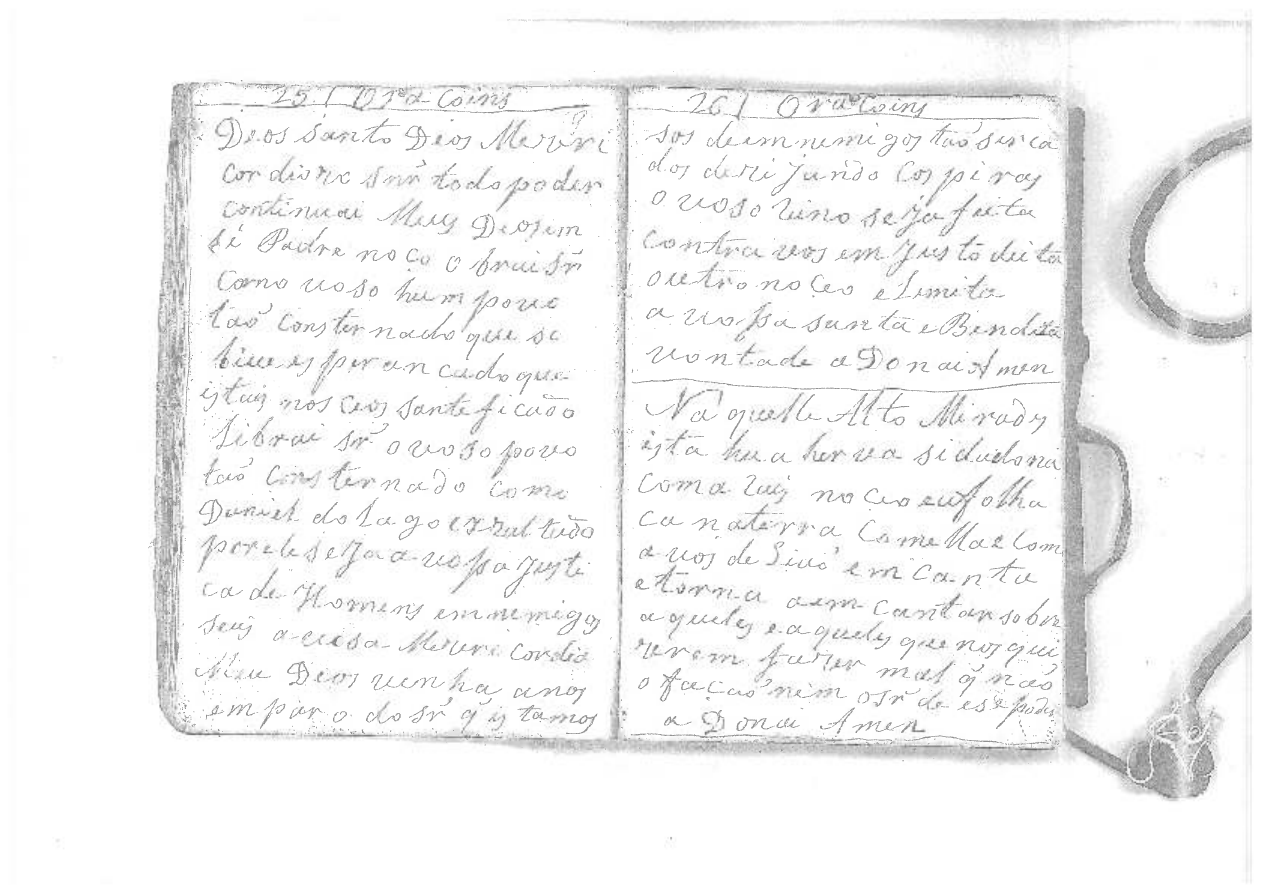 25 | Orª Coins
Deos Santo Deos Mezeri
cordiozo Snr̃ todo poder
continuai Meus Deos em
fé Padre noço o brai Sr̃
como uoso hum pouo
taõ consternado que se
tiue esperancado que
estais nos ceos santeficado
Librai Sr̃ o uoso pouo
taõ consternado como
Daniel do Lago exzaltado
por ele seza a uossa Justi
ca de Homens emnemigos
seus a cusa Mezeri cordia
Meu Deos uenha a nos
em paro do Sr̃ q̃ estamos
26 | Oraº Coins
sos de emnemigos taõ serca
dos de zi jundo Cospiras
o uoso Reino seza feita
contra uos em Justo deita
outro no ceo e Limita
a uossa santa e Bendita
uontade a Donai Amen
Na quelle Alto Mirados
esta hua herua sidadona
com a Raiz no ceo eu folha
ca na terra Com ella e Com
a uos de Siuó em Canta
e torna a em cantar sobre
aqueles e aqueles que nos qui
zerem fazer mal q̃ não
o facaõ nem o Sr̃ de ese poder
a Donai Amen